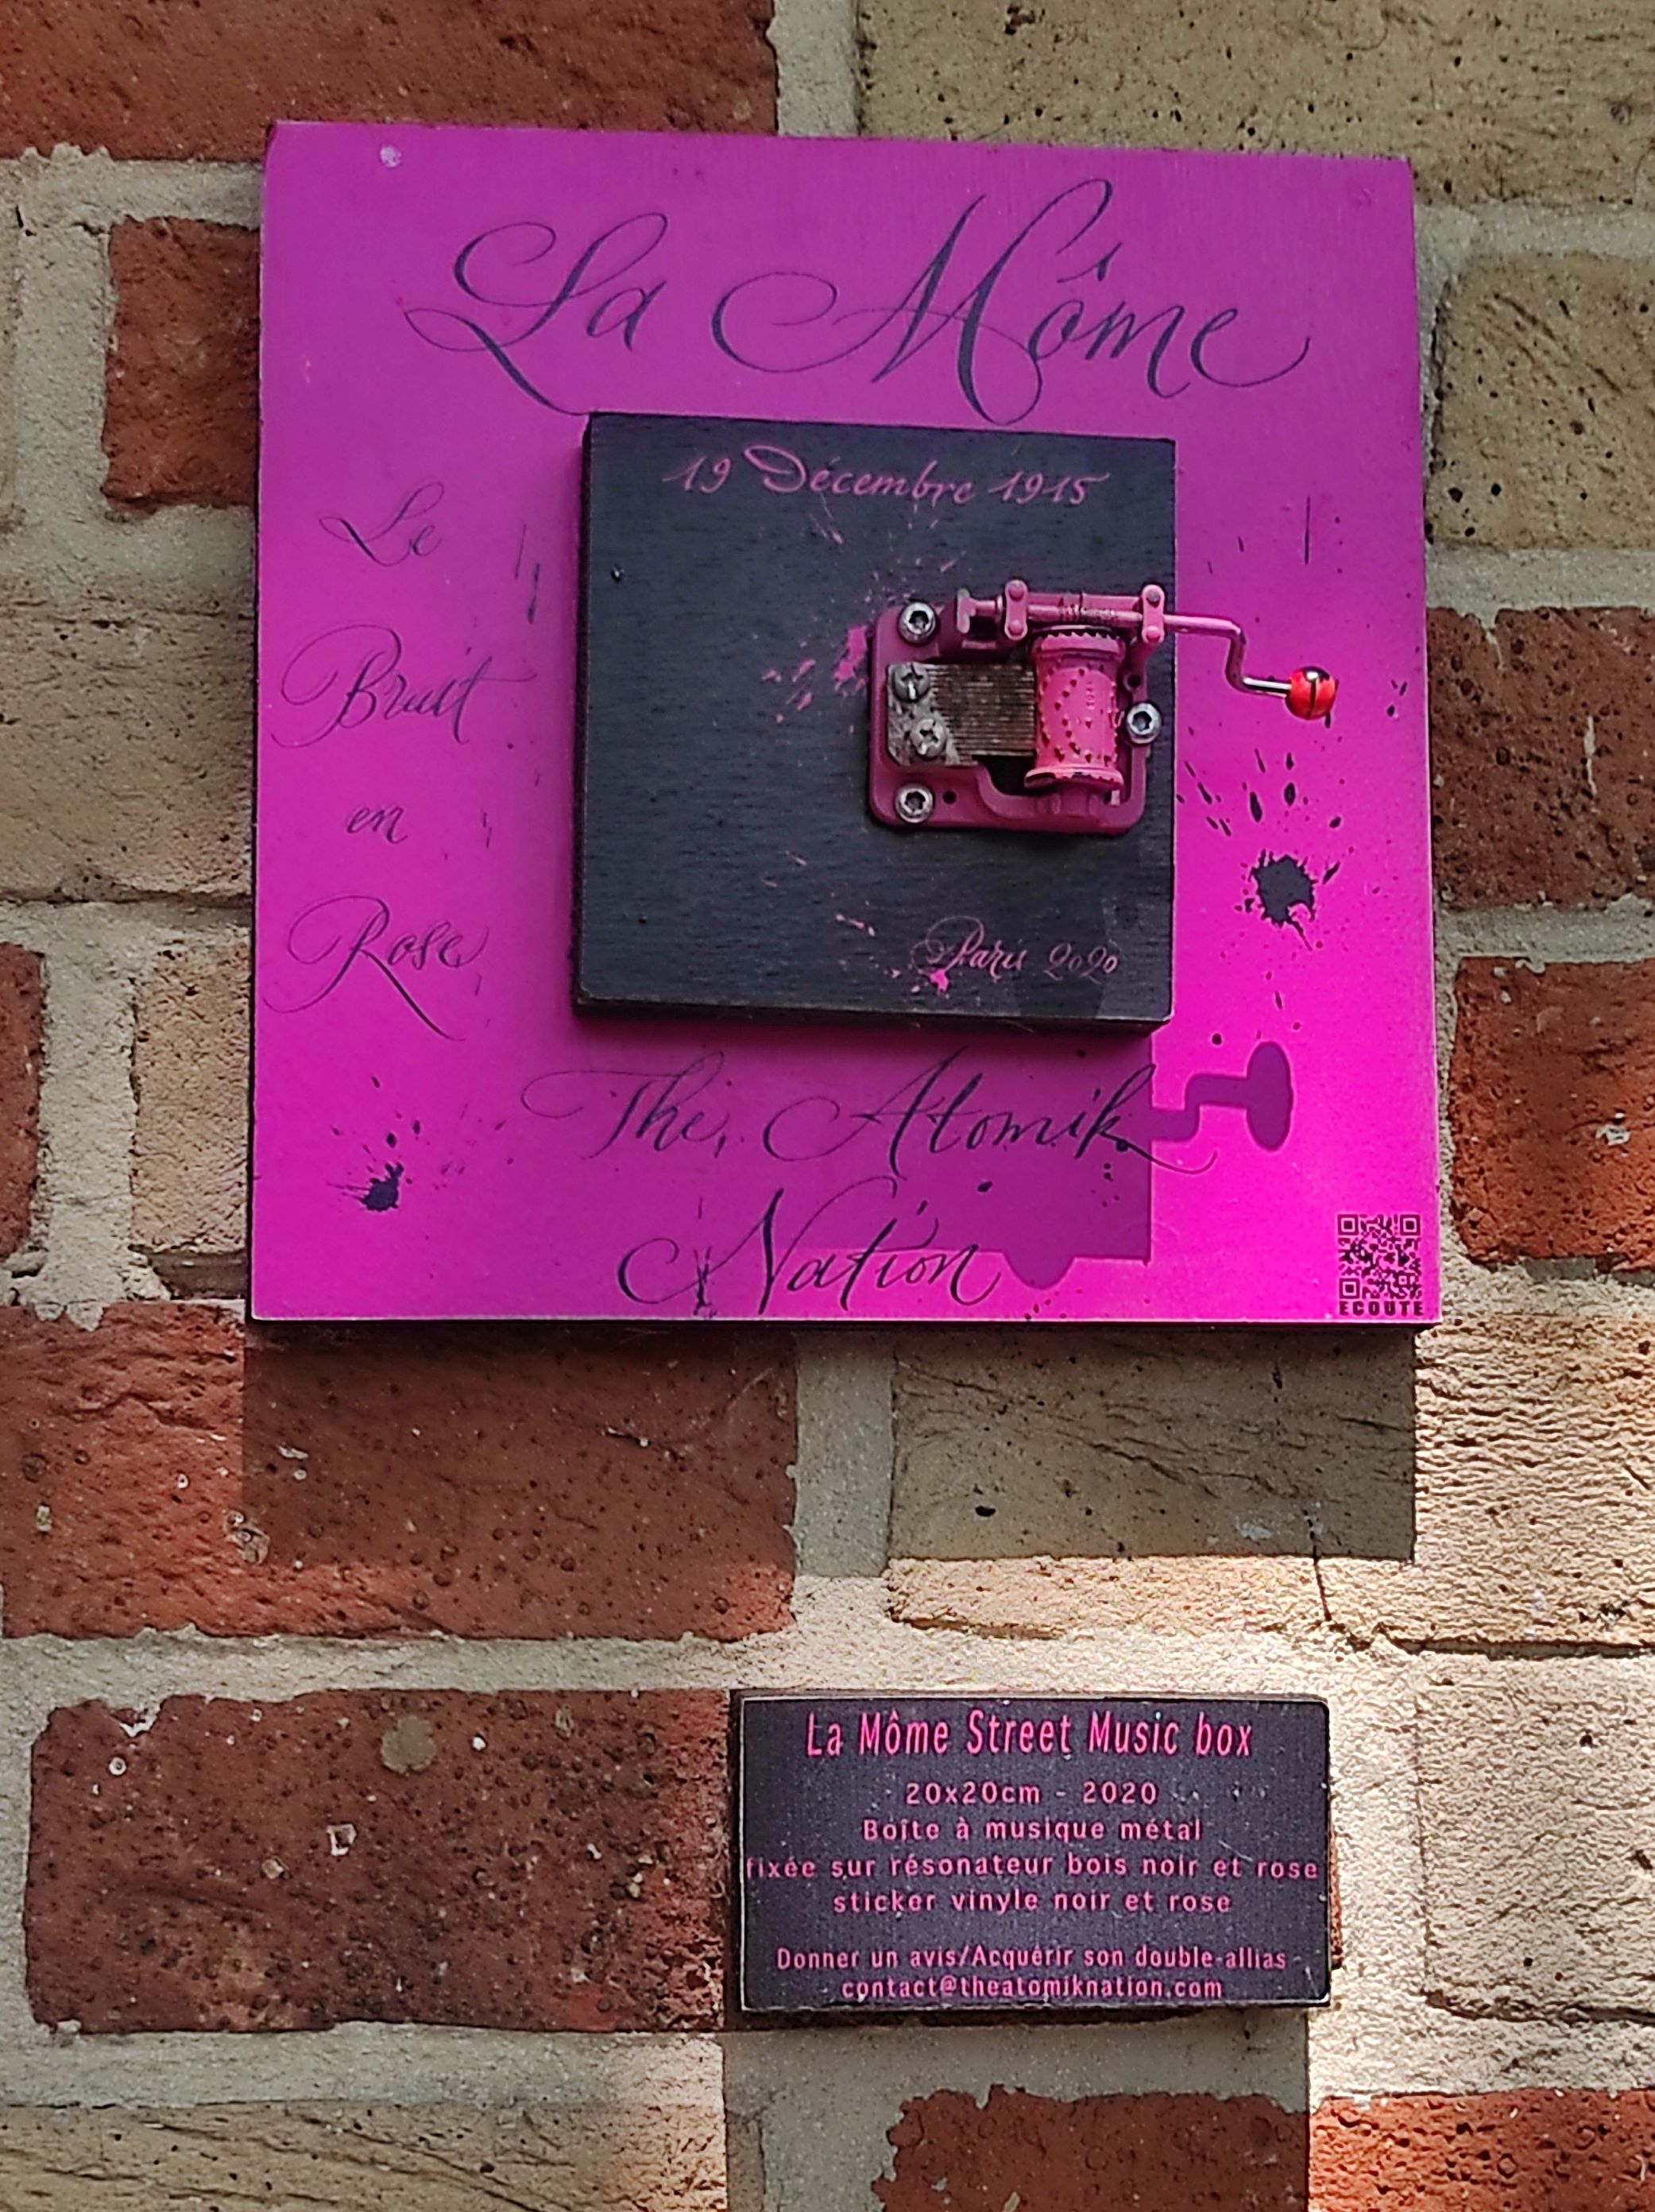 La Môme
19 Décembre 1915
Le
Bruit
en
Rose
Paris 2020
The Atomik
Nation
ECOUTE
La Môme Street Music box
20x20cm - 2020
Boîte à musique métal
fixée sur résonateur bois noir et rose
sticker vinyle noir et rose
Donner un avis/Acquérir son double-allias
contact@theatomiknation.com